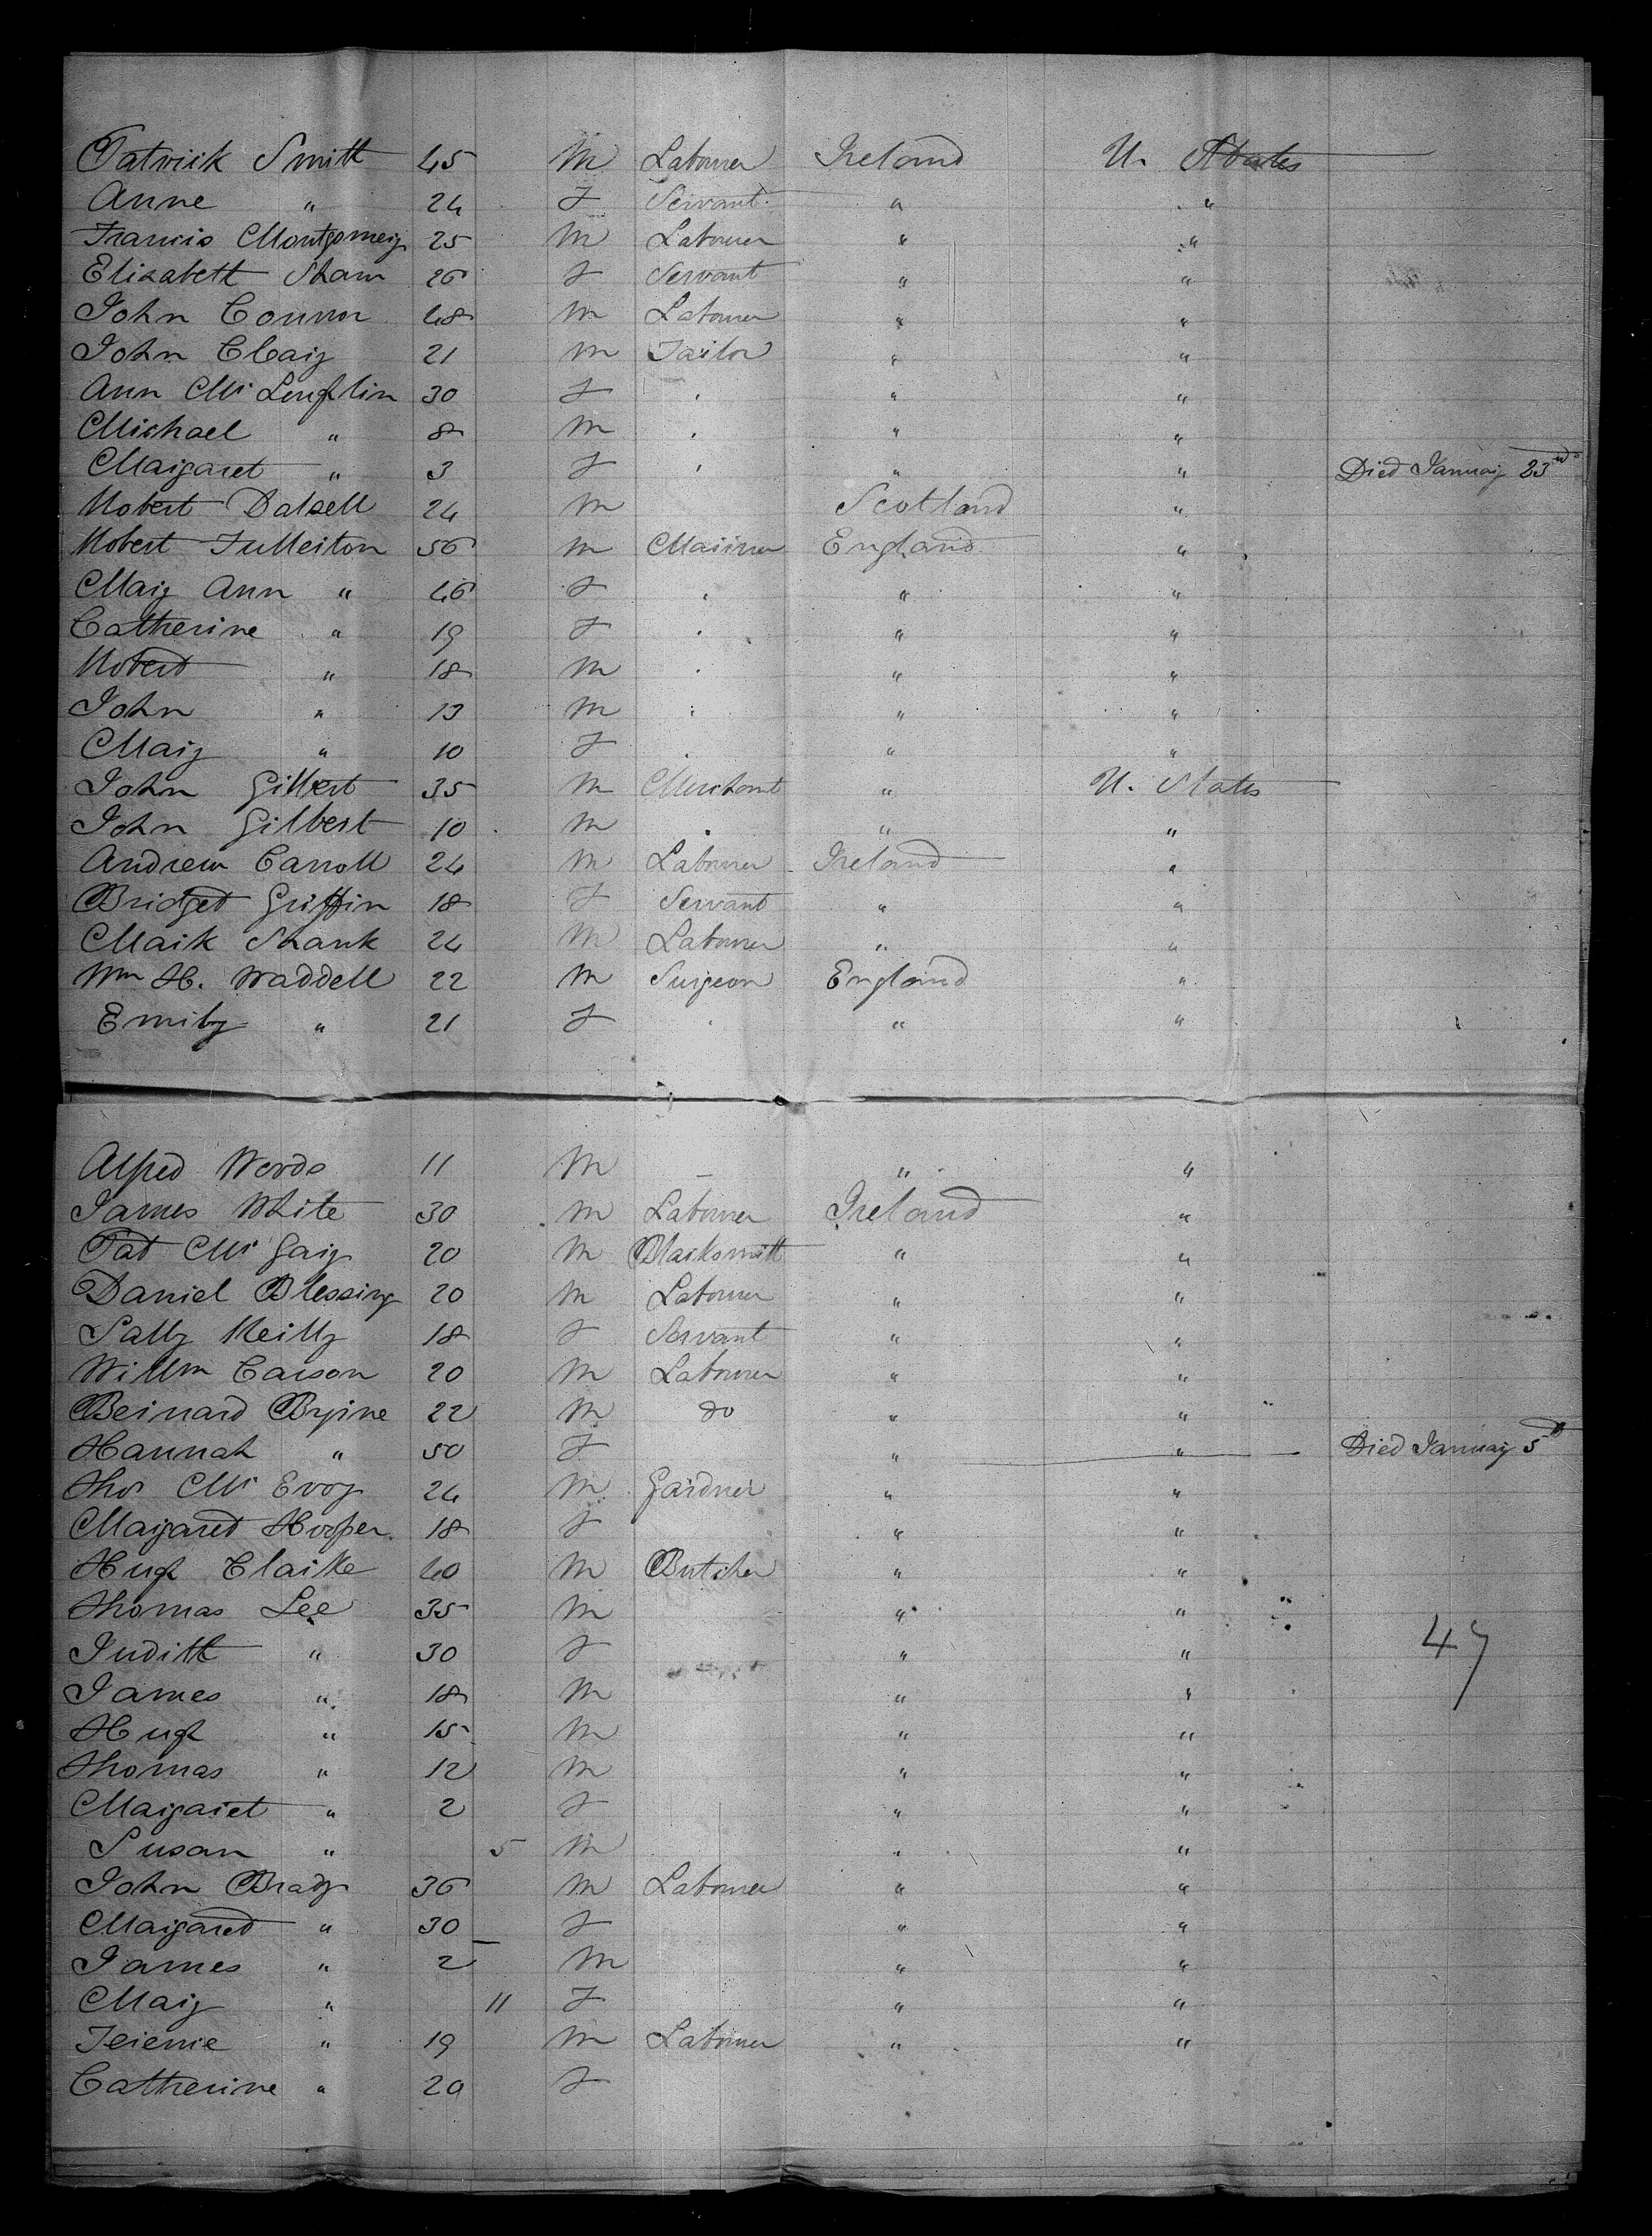 Patrick Smith 45 M Labourer Ireland U. States
Anne " 24 F Servant " "
Francis Montgomery 25 M Labourer " "
Elizabeth Shaw 26 F Servant " "
John Connor 48 M Labourer " "
John Cleary 21 M Tailor " "
Ann Mc Loughlin 30 F " "
Michael " 8 M " "
Margaret " 3 F " " Died January 23rd
Robert Dalzell 24 M Scotland "
Robert Fullerton 56 M Mariner England "
Mary Ann " 46 F " "
Catherine " 19 F " "
Robert " 18 M " "
John " 13 M " "
Mary " 10 F " "
John Gilbert 35 M Merchant " U. States
John Gilbert 10 M " "
Andrew Carroll 24 M Labourer Ireland "
Bridget Griffin 18 F Servant " "
Mark Shank 24 M Labourer " "
Wm H. Waddell 22 M Surgeon England "
Emily " 21 F " "
Alfred Words 11 M — " "
James White 30 M Labourer Ireland "
Pat Mc Gary 20 M Blacksmith " "
Daniel Blessing 20 M Labourer " "
Sally Reilly 18 F Servant " "
Willm Carson 20 M Labourer " "
Bernard Byrne 22 M do " "
Hannah " 50 F " " Died January 5th
Thos Mc Evoy 24 M Gardner " "
Margaret Hooper 18 F " "
Hugh Clarke 40 M Butcher " "
Thomas Lee 35 M " "
Judith " 30 F " " 47
James " 18 M " "
Hugh " 15 M " "
Thomas " 12 M " "
Margaret " 2 F " "
Susan " 5 M " "
John Brady 36 M Labourer " "
Margaret " 30 F " "
James " 2 M " "
Mary " 11 F " "
Jeremie " 19 M Labourer " "
Catherine " 20 F